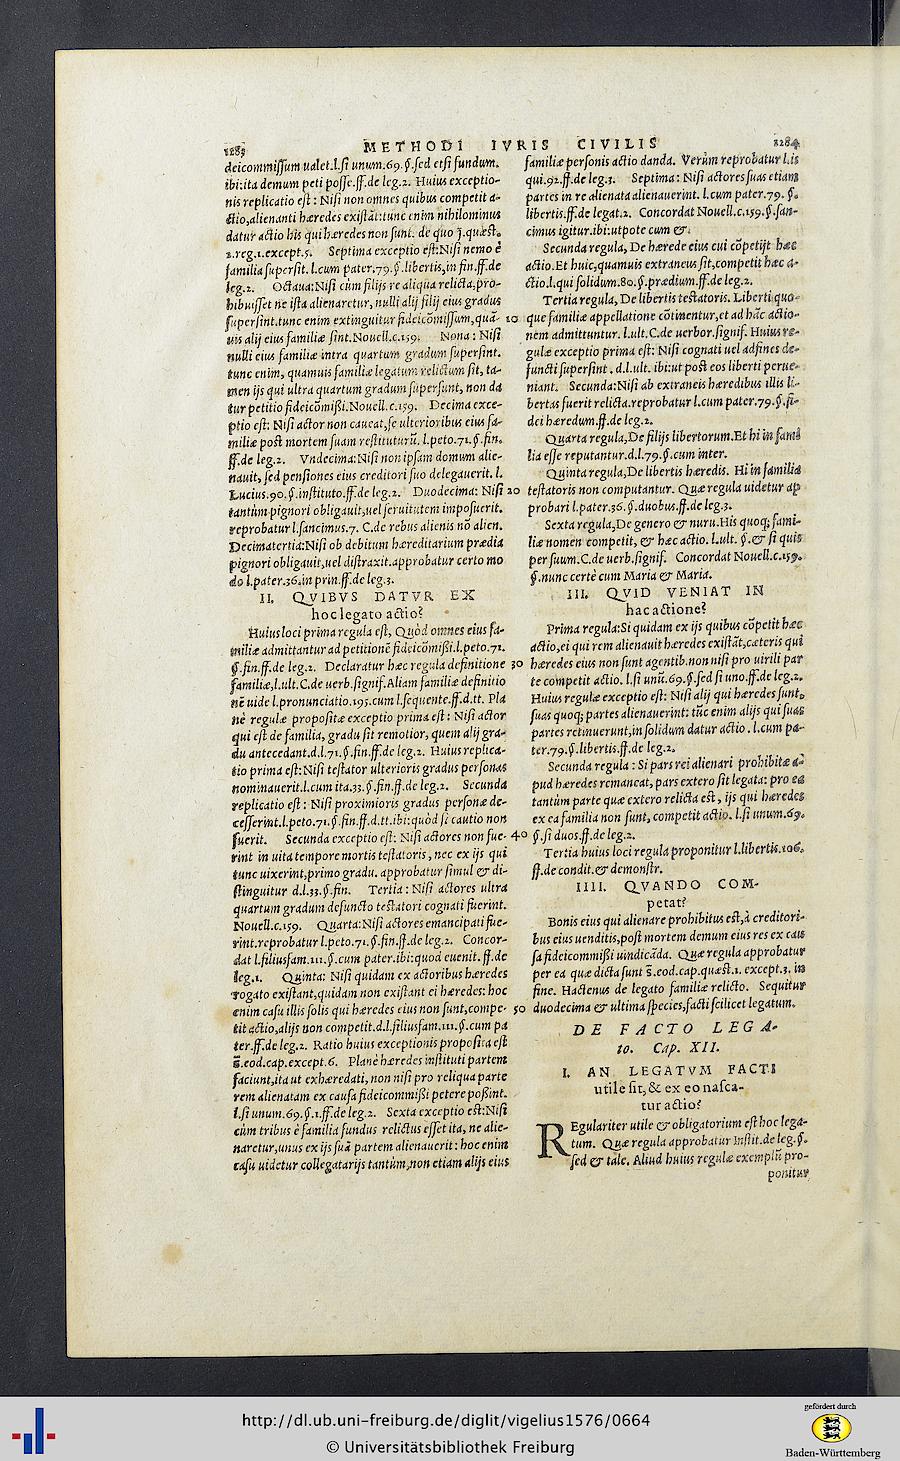 1283
METHODI IVRIS CIVILIS
1284
deicommissum ualet.l.si unum.69.§.sed etsi fundum.
ibi:ita demum peti posse.ff.de leg.2. Huius exceptio-
nis replicatio est: Nisi non omnes quibus competit a-
ctio,alienanti hæredes existãt:tunc enim nihilominus
datur actio his qui hæredes non sunt. de quo j.quæst.
2.reg.1.except.5. Septima exceptio est:Nisi nemo è
familia supersit. l.cum pater.79.§.libertis,in fin.ff.de
leg.2. Octaua:Nisi cùm filijs re aliqua relicta,pro-
hibuisset ne ista alienaretur, nulli alij filij eius gradus
supersint.tunc enim extinguitur fideicõmissum,quã-
uis alij eius familiæ sint.Nouell.c.159. Nona: Nisi
nulli eius familiæ intra quartum gradum supersint.
tunc enim, quamuis familiæ legatum relictum sit, ta-
men ijs qui ultra quartum gradum supersunt, non da
tur petitio fideicõmißi.Nouell.c.159. Decima exce-
ptio est: Nisi actor non caueat,se ulterioribus eius fa-
miliæ post mortem suam restituturũ. l.peto.71.§.fin.
ff.de leg.2. Vndecima:Nisi non ipsam domum alie-
nauit, sed pensiones eius creditori suo delegauerit. l.
Lucius.90.§.instituto.ff.de leg.2. Duodecima: Nisi
tantùm pignori obligauit,uel seruitutem imposuerit.
reprobatur l.sancimus.7. C.de rebus alienis nõ alien.
Decimatertia:Nisi ob debitum hæreditarium prædia
pignori obligauit,uel distraxit.approbatur certo mo
do l.pater.36.in prin.ff.de leg.3.
II. QVIBVS DATVR EX
hoc legato actio?
Huius loci prima regula est, Quòd omnes eius fa-
miliæ admittantur ad petitionẽ fideicõmißi.l.peto.71.
§.fin.ff.de leg.2. Declaratur hæc regula definitione
familiæ,l.ult.C.de uerb.signif.Aliam familiæ definitio
nẽ uide l.pronunciatio.195.cum l.sequente.ff.d.tt. Pla
nè regulæ propositæ exceptio prima est: Nisi actor
qui est de familia, gradu sit remotior, quem alij gra-
du antecedant.d.l.71.§.fin.ff.de leg.2. Huius replica-
tio prima est:Nisi testator ulterioris gradus personas
nominauerit.l.cum ita.33.§.fin.ff.de leg.2. Secunda
replicatio est: Nisi proximioris gradus personæ de-
cesserint.l.peto.71.§.fin.ff.d.tt.ibi:quòd si cautio non
fuerit. Secunda exceptio est: Nisi actores non fue-
rint in uita tempore mortis testatoris, nec ex ijs qui
tunc uixerint,primo gradu. approbatur simul & di-
stinguitur d.l.33.§.fin. Tertia: Nisi actores ultra
quartum gradum defuncto testatori cognati fuerint.
Nouell.c.159. Quarta:Nisi actores emancipati fue-
rint.reprobatur l.peto.71.§.fin.ff.de leg.2. Concor-
dat l.filiusfam.111.§.cum pater.ibi:quod euenit.ff.de
leg.1. Quinta: Nisi quidam ex actoribus hæredes
rogato existant,quidam non existant ei hæredes: hoc
enim casu illis solis qui hæredes eius non sunt,compe-
tit actio,alijs non competit.d.l.filiusfam.111.§.cum pa
ter.ff.de leg.2. Ratio huius exceptionis proposita est
s̃.eod.cap.except.6. Planè hæredes instituti partem
faciunt,ita ut exhæredati, non nisi pro reliqua parte
rem alienatam ex causa fideicommißi petere poßint.
l.si unum.69.§.1.ff.de leg.2. Sexta exceptio est:Nisi
cùm tribus è familia fundus relictus esset ita, ne alie-
naretur,unus ex ijs suã partem alienauerit: hoc enim
casu uidetur collegatarijs tantùm,non etiam alijs eius
10
20
30
40
50
familiæ personis actio danda. Verùm reprobatur l.is
qui.92.ff.de leg.3. Septima: Nisi actores suas etiam
partes in re alienata alienauerint. l.cum pater.79. §.
libertis.ff.de legat.2. Concordat Nouell.c.159.§.san-
cimus igitur.ibi:utpote cum &.
Secunda regula, De hærede eius cui cõpetijt hæc
actio.Et huic,quamuis extraneus sit,competit hæc a-
ctio.l.qui solidum.80.§.prædium.ff.de leg.2.
Tertia regula, De libertis testatoris. Liberti quo-
que familiæ appellatione cõtinentur,et ad hãc actio-
nem admittuntur. l.ult.C.de uerbor.signif. Huius re-
gulæ exceptio prima est: Nisi cognati uel adfines de-
functi supersint. d.l.ult. ibi:ut post eos liberti perue-
niant. Secunda:Nisi ab extraneis hæredibus illis li-
bertas fuerit relicta.reprobatur l.cum pater.79.§.fi-
dei hæredum.ff.de leg.2.
Quarta regula,De filijs libertorum.Et hi in fami
lia esse reputantur.d.l.79.§.cum inter.
Quinta regula,De libertis hæredis. Hi in familia
testatoris non computantur. Quæ regula uidetur ap
probari l.pater.36.§.duobus.ff.de leg.3.
Sexta regula,De genero & nuru.His quoq; fami-
liæ nomen competit, & hæc actio. l.ult. §.& si quis
per suum.C.de uerb.signif. Concordat Nouell.c.159.
§.nunc certè cum Maria & Maria.
III. QVID VENIAT IN
hac actione?
Prima regula:Si quidam ex ijs quibus cõpetit hæc
actio,ei qui rem alienauit hæredes existãt,cæteris qui
hæredes eius non sunt agentib.non nisi pro uirili par
te competit actio. l.si unũ.69.§.sed si uno.ff.de leg.2.
Huius regulæ exceptio est: Nisi alij qui hæredes sunt,
suas quoq; partes alienauerint: tũc enim alijs qui suas
partes retinuerunt,in solidum datur actio. l.cum pa-
ter.79.§.libertis.ff.de leg.2.
Secunda regula: Si pars rei alienari prohibitæ a-
pud hæredes remaneat, pars extero sit legata: pro ea
tantùm parte quæ extero relicta est, ijs qui hæredes
ex ea familia non sunt, competit actio. l.si unum.69.
§.si duos.ff.de leg.2.
Tertia huius loci regula proponitur l.libertis.106.
ff.de condit.& demonstr.
IIII. QVANDO COM-
petat?
Bonis eius qui alienare prohibitus est,à creditori-
bus eius uenditis,post mortem demum eius res ex cau
sa fideicommißi uindicãda. Quæ regula approbatur
per ea quæ dicta sunt s̃.eod.cap.quæst.1. except.3. in
fine. Hactenus de legato familiæ relicto. Sequitur
duodecima & ultima species,facti scilicet legatum.
DE FACTO LEGA-
to. Cap. XII.
I. AN LEGATVM FACTI
utile sit, & ex eo nasca-
tur actio?
REgulariter utile & obligatorium est hoc lega-
tum. Quæ regula approbatur Instit.de leg.§.
sed & tale. Aliud huius regulæ exemplũ pro-
ponitur
http://dl.ub.uni-freiburg.de/diglit/vigelius1576/0664
© Universitätsbibliothek Freiburg
gefördert durch
Baden-Württemberg